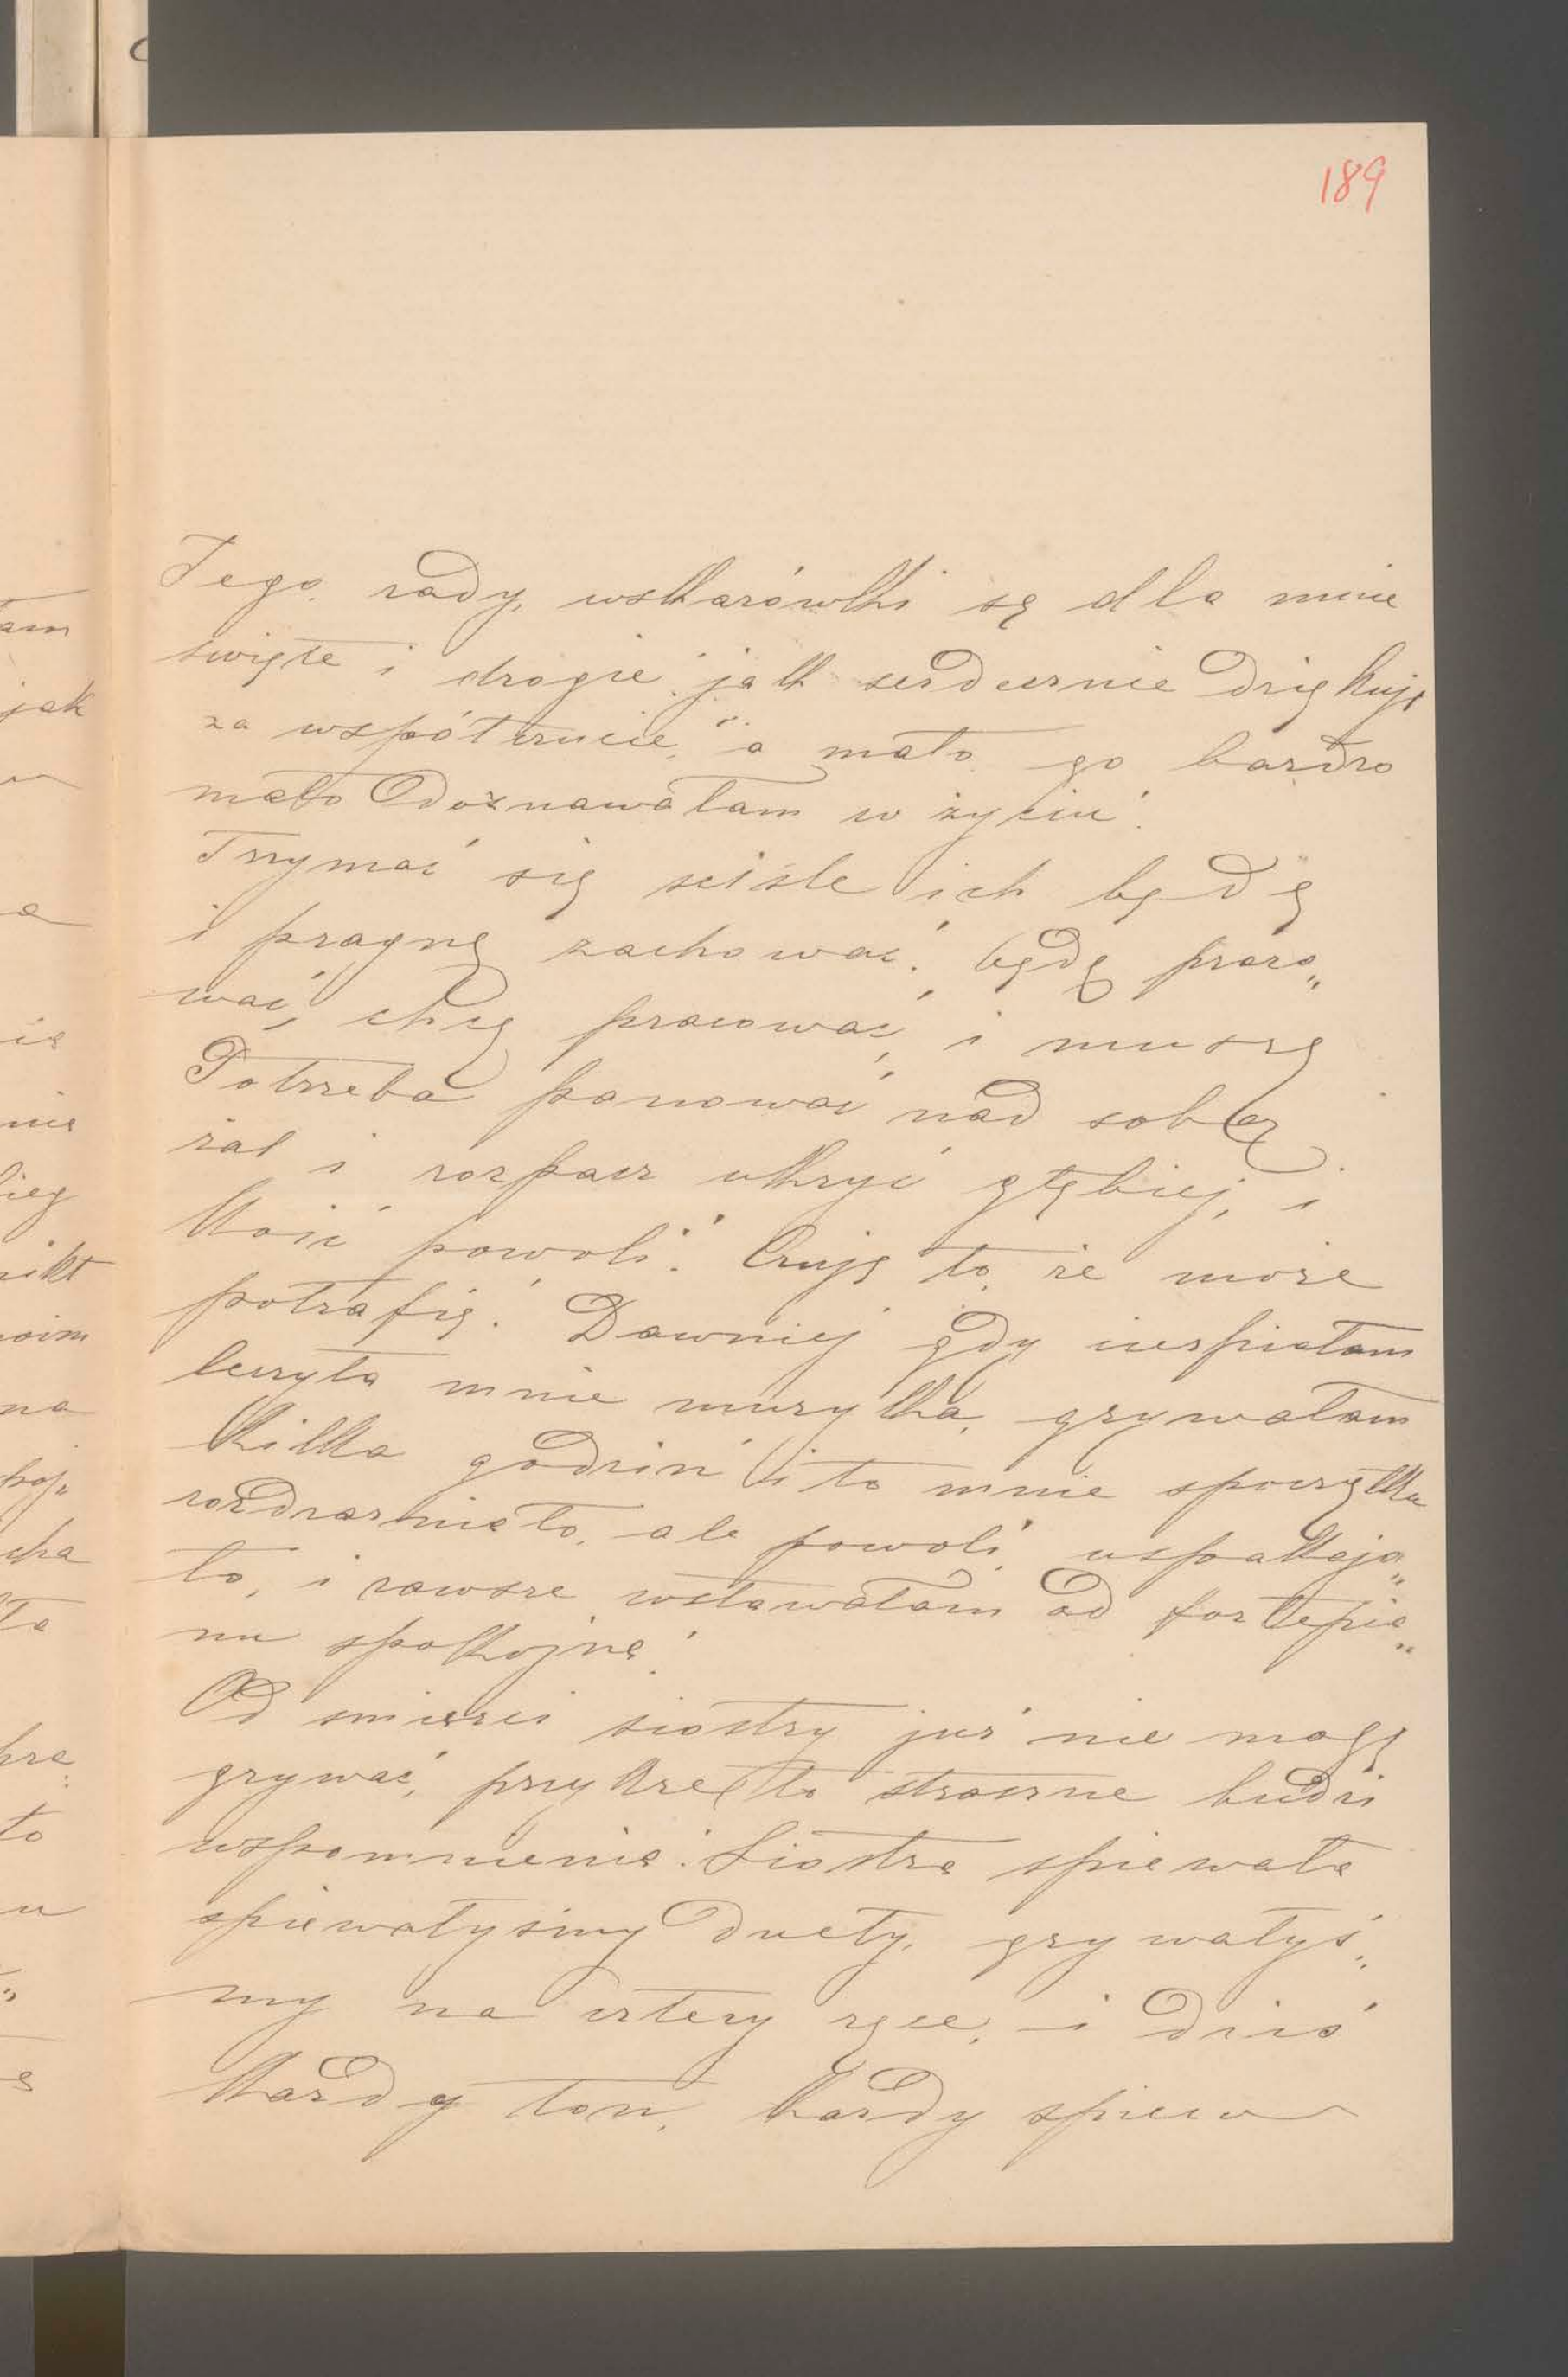 189
Jego rady, wskazówki są dla mnie
święte i drogie jak serdecznie dziękuję
za współczucie, a mało go bardzo
mało doznawałam w życiu.
Trzymać się ściśle ich będę
i pragnę zachować, będę praco„
wać, chcę pracować, i muszę
Potrzeba panować nad sobą
żal i rozpacz ukryć głębiej, i
koić powoli. Czuję to, że może
potrafię. Dawniej gdy cierpiałam
leczyła mnie muzyka, grywałam
kilka godzin i to mnie spoczątku
rozdrażniało, ale powoli uspakaja„
ło, i zawsze wstawałam od fortepia„
nu spokojna.
Od śmierci siostry już nie mogę
grywać, przykre to straszne budzi
wspomnienia. Siostra śpiewała
śpiewałyśmy duety, grywałyś„
my na cztery ręce, i dziś
każdy ton, każdy śpiew
am
jak
nie
ikt
na
poj„
cha
ła
to